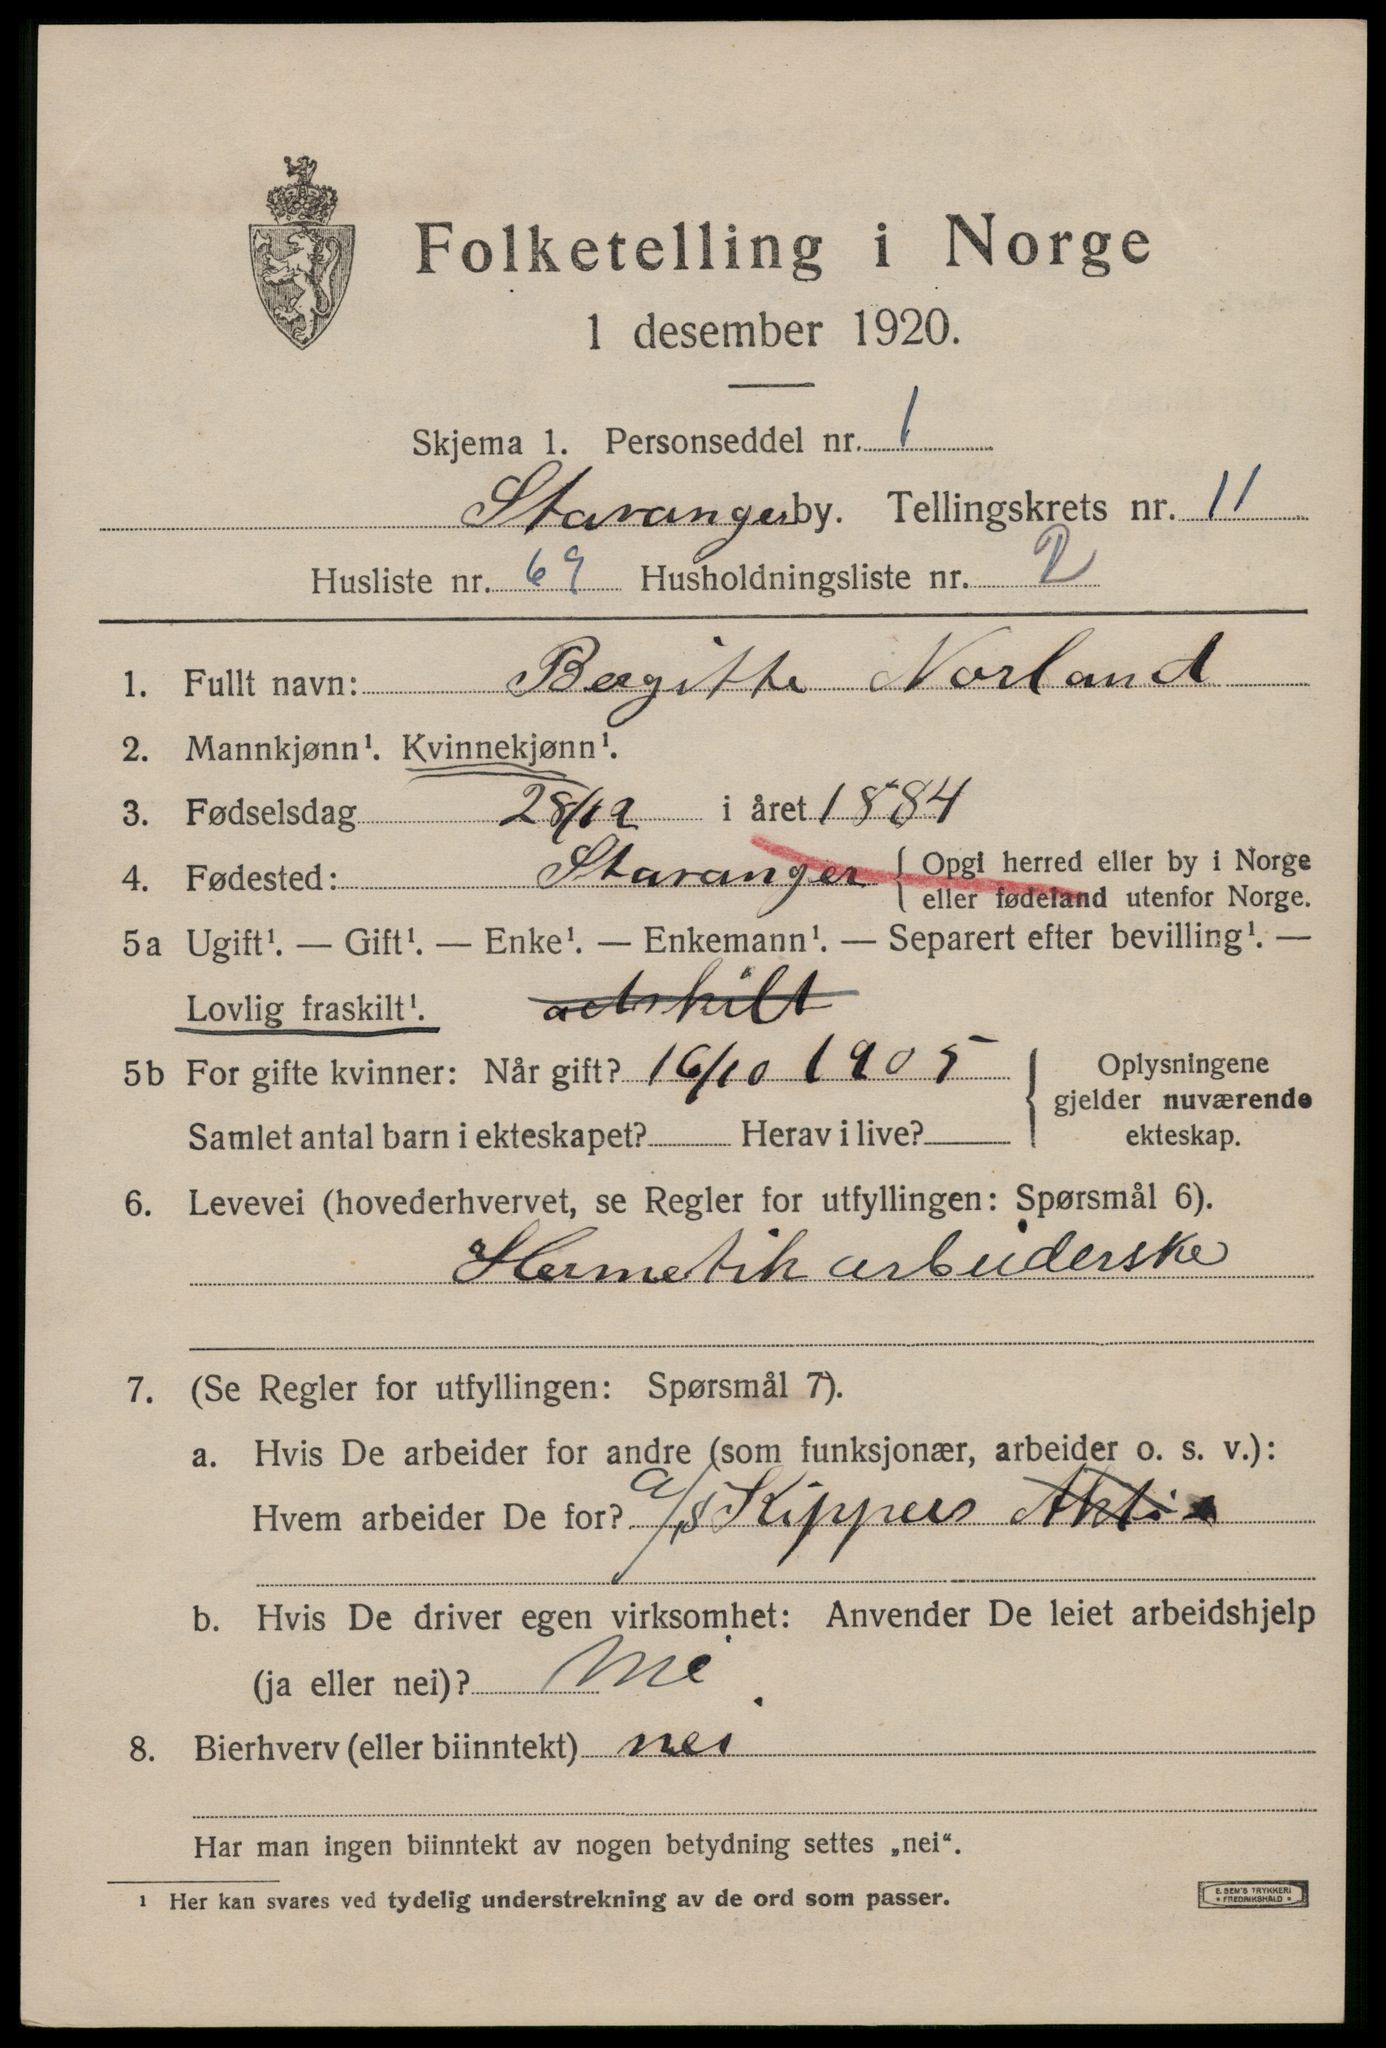 Folketelling i Norge
1 desember 1920.
Skjema 1. Personseddel nr. 1
Stavanger by. Tellingskrets nr. 11
Husliste nr. 69 Husholdningsliste nr. 2
1. Fullt navn: Bergitte Norland
2. Mannkjønn¹. Kvinnekjønn¹.
3. Fødselsdag 28/12 i året 1884
4. Fødested: Stavanger { Opgi herred eller by i Norge
eller fødeland utenfor Norge.
5a Ugift¹. — Gift¹. — Enke¹. — Enkemann¹. — Separert efter bevilling¹. —
Lovlig fraskilt¹. adskilt
5b For gifte kvinner: Når gift? 16/10 1905
Samlet antal barn i ekteskapet? Herav i live?
Oplysningene
gjelder nuværende
ekteskap.
6. Levevei (hovederhvervet, se Regler for utfyllingen: Spørsmål 6).
Hermetik arbeiderske
7. (Se Regler for utfyllingen: Spørsmål 7).
a. Hvis De arbeider for andre (som funksjonær, arbeider o. s. v.):
Hvem arbeider De for? a/s Kippers Akti
b. Hvis De driver egen virksomhet: Anvender De leiet arbeidshjelp
(ja eller nei)? nei
8. Bierhverv (eller biinntekt) nei
Har man ingen biinntekt av nogen betydning settes „nei“.
¹ Her kan svares ved tydelig understrekning av de ord som passer.
E. SEM'S TRYKKERI
* FREDRIKSHALD *